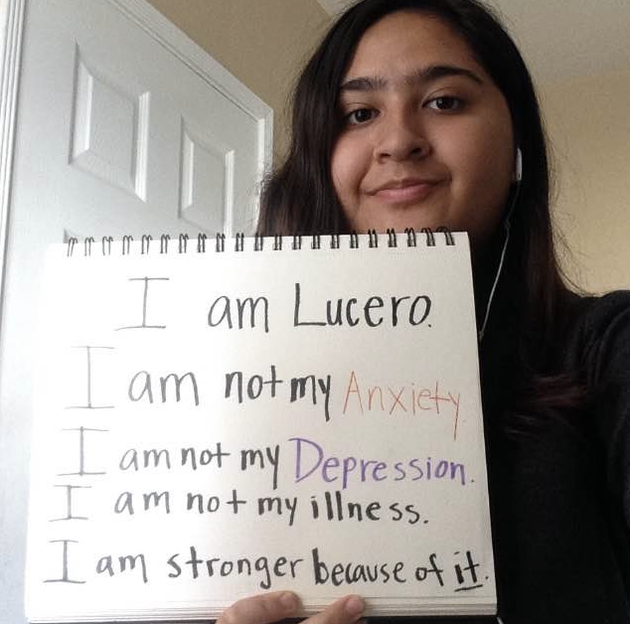 I am Lucero.
I am not my Anxiety.
I am not my Depression.
I am not my illness.
I am stronger because of it.